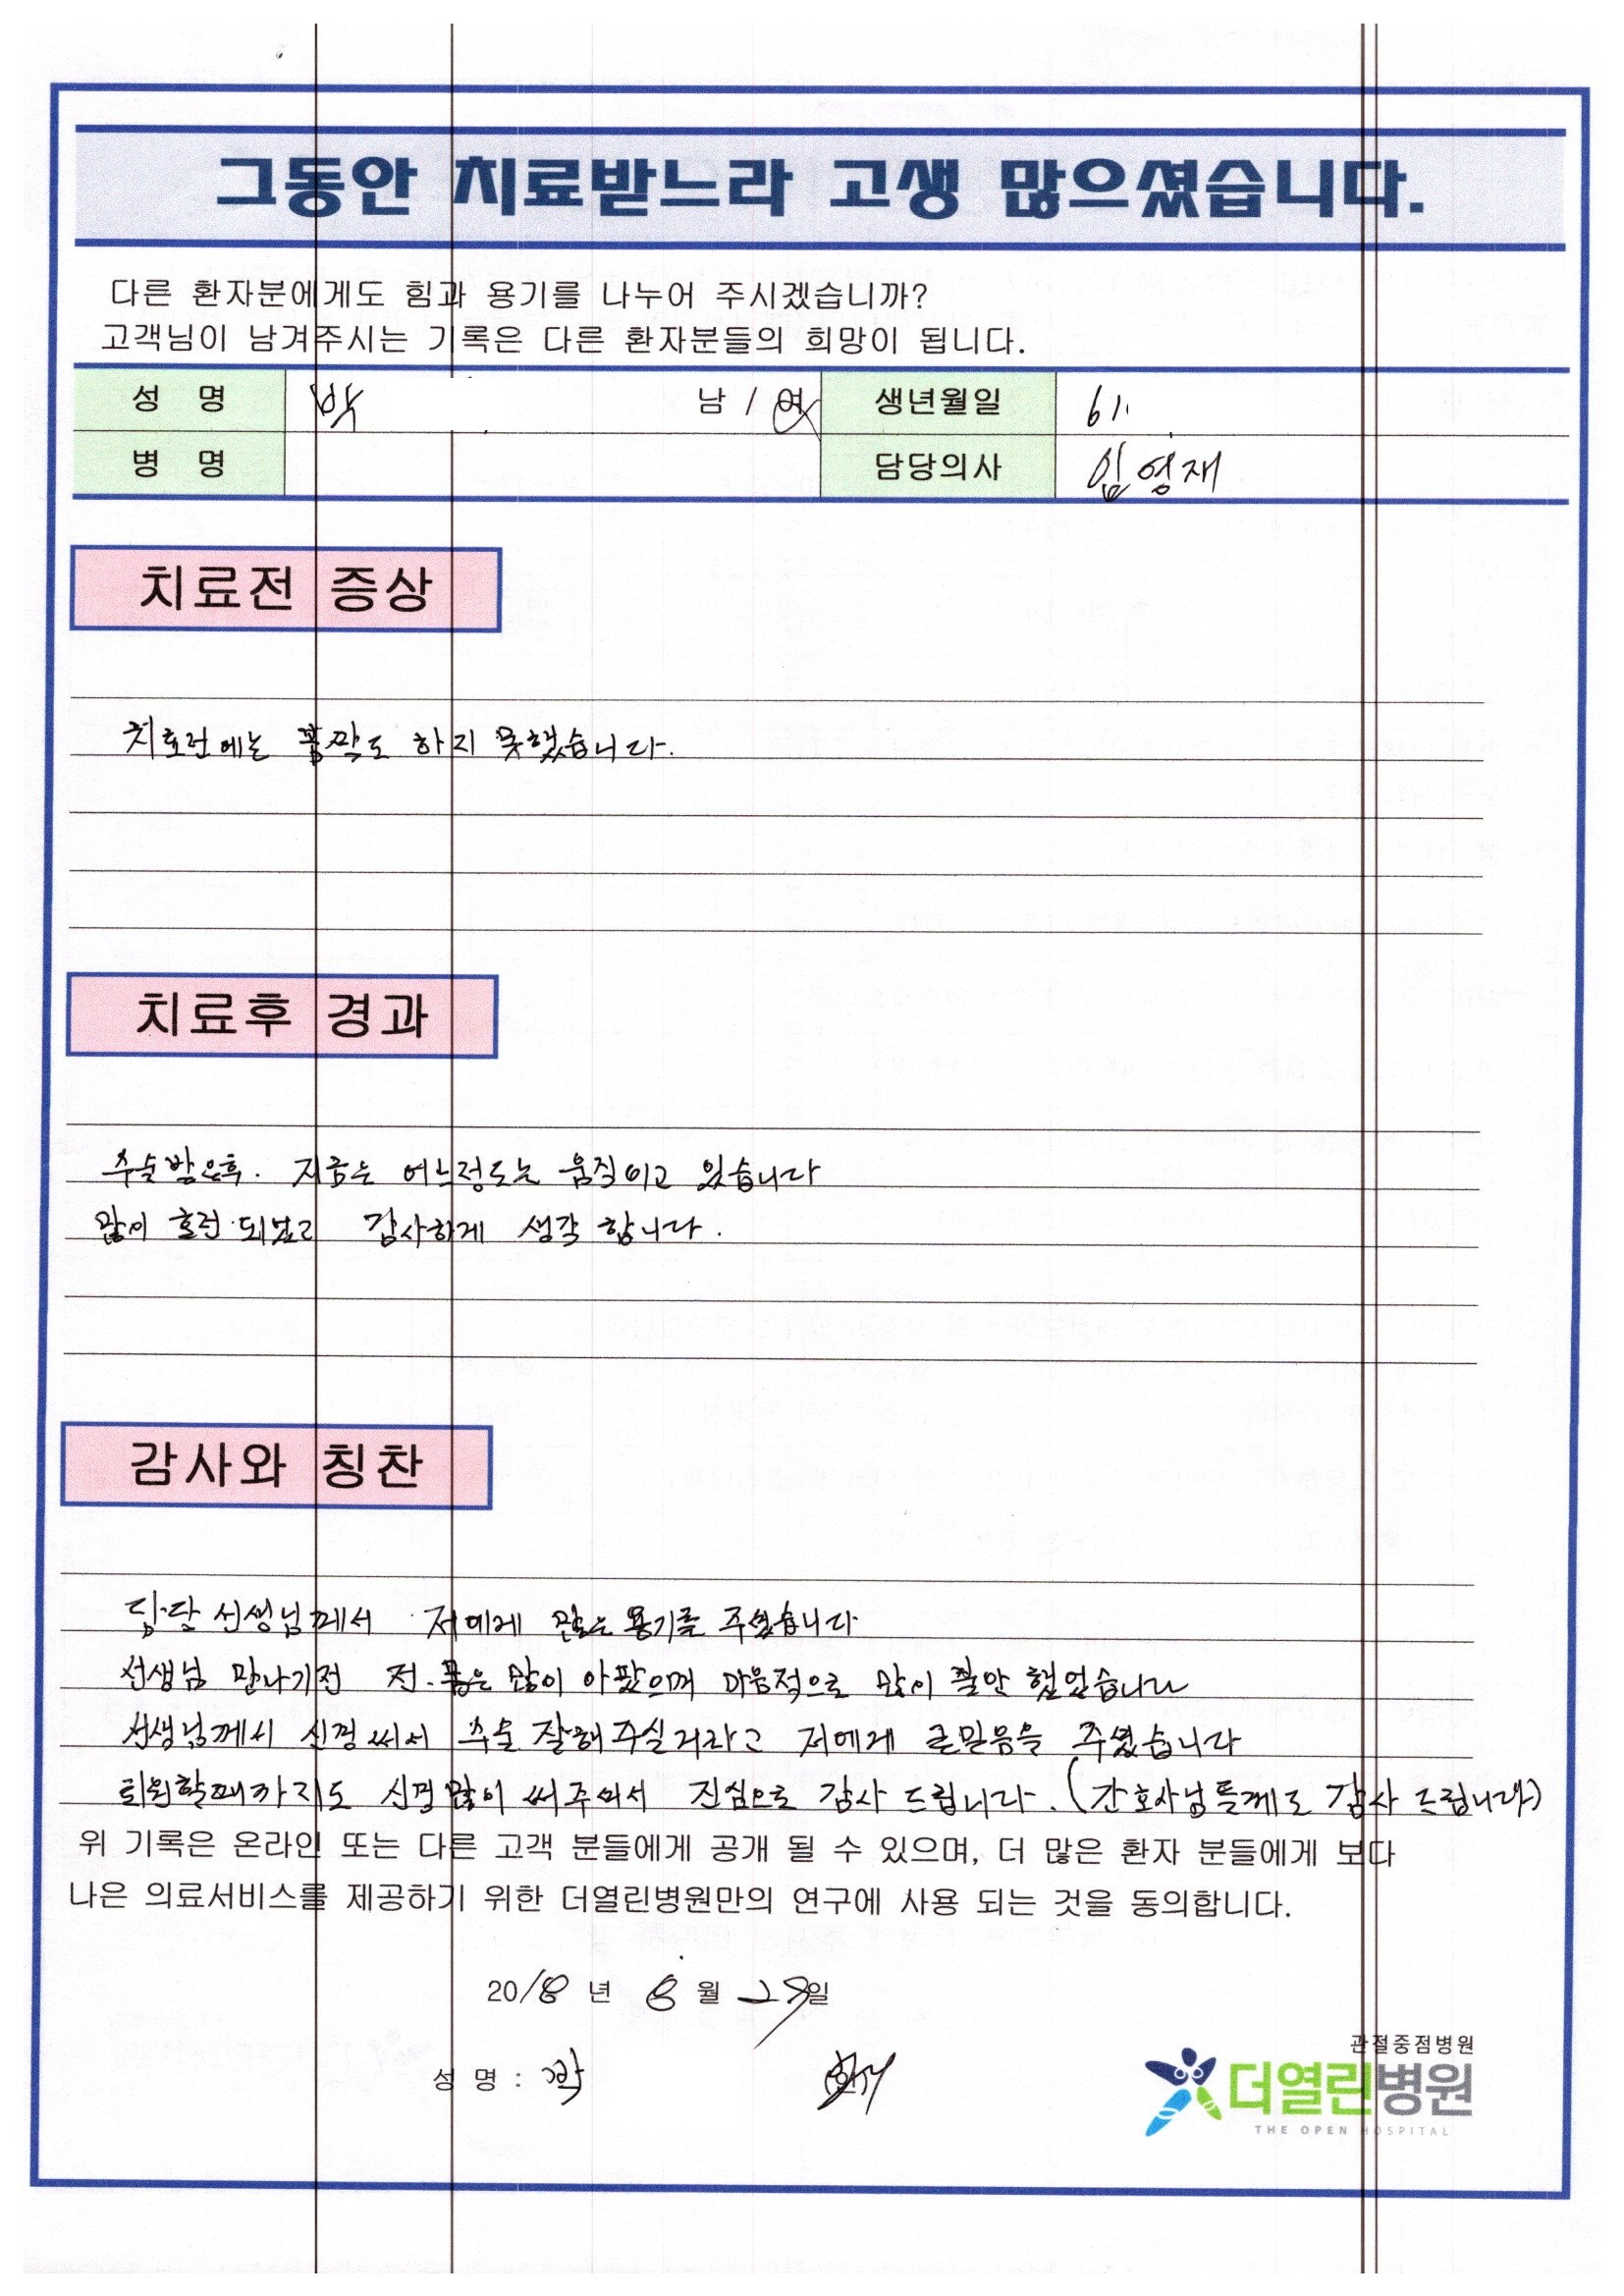 그동안 치료받느라 고생 많으셨습니다.
다른 환자분에게도 힘과 용기를 나누어 주시겠습니까?
고객님이 남겨주시는 기록은 다른 환자분들의 희망이 됩니다.
성 명 박 남 / 여 생년월일 61
병 명 담당의사 임영재
치료전 증상
치료전에는 꼼짝도 하지 못했습니다.
치료후 경과
수술받은후. 지금은 어느정도는 움직이고 있습니다
많이 호전 되었고 감사하게 생각 합니다.
감사와 칭찬
담당 선생님께서 저에게 많은 용기를 주셨습니다
선생님 만나기전 전. 몸은 많이 아팠으며 마음적으로 많이 불안 했었습니다
선생님께서 신경써서 수술 잘해주실거라고 저에게 큰믿음을 주셨습니다
퇴원할때까지도 신경많이 써주셔서 진심으로 감사 드립니다. (간호사님들께도 감사 드립니다)
위 기록은 온라인 또는 다른 고객 분들에게 공개 될 수 있으며, 더 많은 환자 분들에게 보다
나은 의료서비스를 제공하기 위한 더열린병원만의 연구에 사용 되는 것을 동의합니다.
2018 년 8 월 29일
성 명 : 박
관절중점병원
더열린병원
THE OPEN HOSPITAL